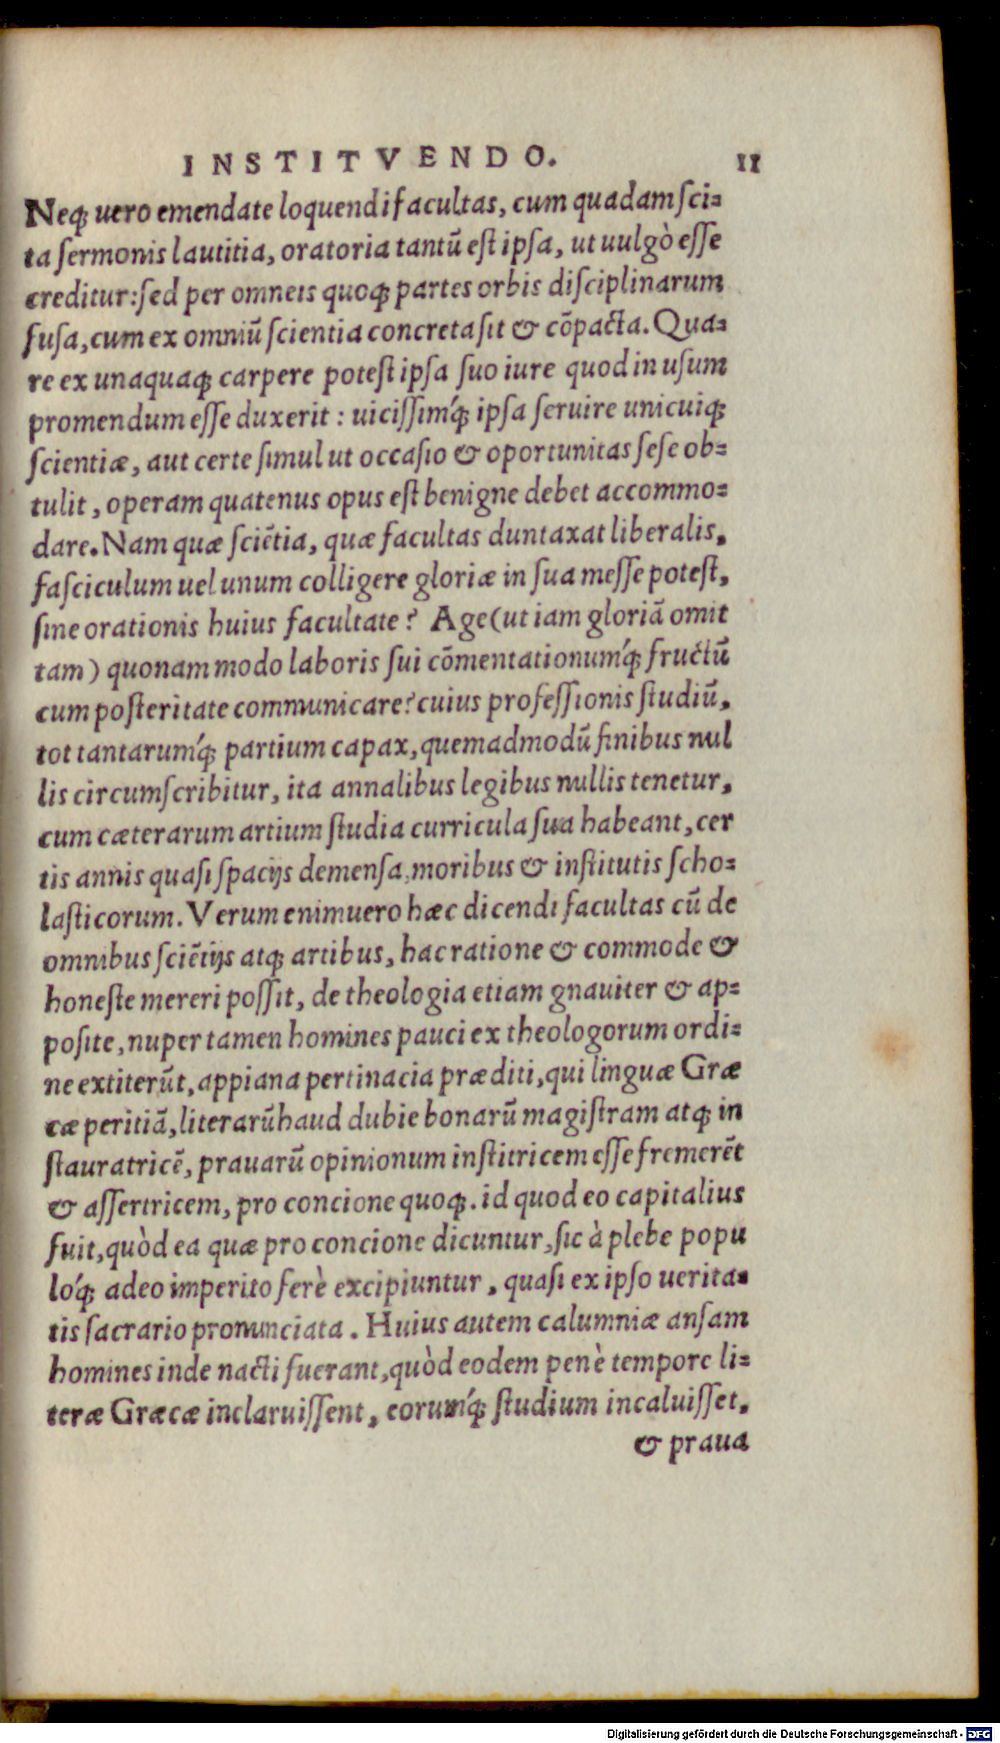 INSTITVENDO. 11
Neqꝫ uero emendate loquendi facultas, cum quadam ſci-
ta ſermonis lautitia, oratoria tantũ eſt ipſa, ut uulgò eſſe
creditur: ſed per omneis quoqꝫ partes orbis diſciplinarum
fuſa, cum ex omniũ ſcientia concreta ſit & cõpacta. Qua-
re ex unaquaqꝫ carpere poteſt ipſa ſuo iure quod in uſum
promendum eſſe duxerit : uiciſſimq́ꝫ ipſa ſeruire unicuiqꝫ
ſcientiæ, aut certe ſimul ut occaſio & oportunitas ſeſe ob-
tulit, operam quatenus opus eſt benigne debet accommo-
dare. Nam quæ ſciẽtia, quæ facultas duntaxat liberalis,
faſciculum uel unum colligere gloriæ in ſua meſſe poteſt,
ſine orationis huius facultate? Age (ut iam gloriã omit
tam) quonam modo laboris ſui cõmentationumq́ꝫ fructũ
cum poſteritate communicare? cuius profeſſionis ſtudiũ,
tot tantarumq́ꝫ partium capax, quemadmodũ finibus nul
lis circumſcribitur, ita annalibus legibus nullis tenetur,
cum cæterarum artium ſtudia curricula ſua habeant, cer
tis annis quaſi ſpacijs demenſa, moribus & inſtitutis ſcho-
laſticorum. Verum enimuero hæc dicendi facultas cũ de
omnibus ſciẽtijs atqꝫ artibus, hac ratione & commode &
honeſte mereri poſſit, de theologia etiam gnauiter & ap-
poſite, nuper tamen homines pauci ex theologorum ordi-
ne extiterũt, appiana pertinacia præditi, qui linguæ Græ
cæ peritiã, literarũ haud dubie bonarũ magiſtram atqꝫ in
ſtauratricẽ, prauarũ opinionum inſtitricem eſſe fremerẽt
& aſſertricem, pro concione quoqꝫ. id quod eo capitalius
fuit, quòd ea quæ pro concione dicuntur, ſic à plebe popu
loq́ꝫ adeo imperito ferè excipiuntur, quaſi ex ipſo uerita-
tis ſacrario pronunciata. Huius autem calumniæ anſam
homines inde nacti fuerant, quòd eodem penè tempore li-
teræ Græcæ inclaruiſſent, eorumq́ꝫ ſtudium incaluiſſet,
& praua
Digitalisierung gefördert durch die Deutsche Forschungsgemeinschaft - DFG